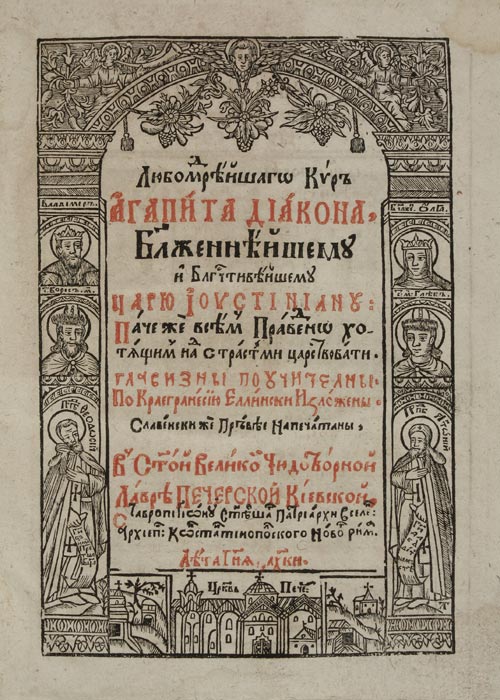 Любомⷣрѣйшагѡ Кѷръ
АГАПИ́ТА ДІА́КОНА,
Блаженнѣ́йшему
и҆ Блгⷪ҇чтивѣ́йшему
ЦАРЮ ІОУСТІНІАНУ:
Паче же всѣ́м Пра́веⷣнѡ хо-
тѧщиⷨ наⷣ страстⷨи царⷭ҇твовати.
ГЛАВИЗНЫ ПОУЧИТЕЛНЫ.
По Краегранесїю Еллински Изложены.
Славенски жⷷ Прⷺвѣе Напечатаны,
В Стой Велико Чюдотворной
Лаврѣ ПЕЧЕРСКОЙ Кїевской,
Ставропигїону Стѣйша Патрїархи Вселе:
Архїеп: Константинопоского Новог Рим.
Лѣта Гнѧ, ҂ахки.
Владимеръ
С: Борисъ. м.
Прпⷣб: Ѳеодосїй
Ѡлга.
С: м. Глѣбъ.
Прпⷣб: Антонїй
Церковъ Пече: